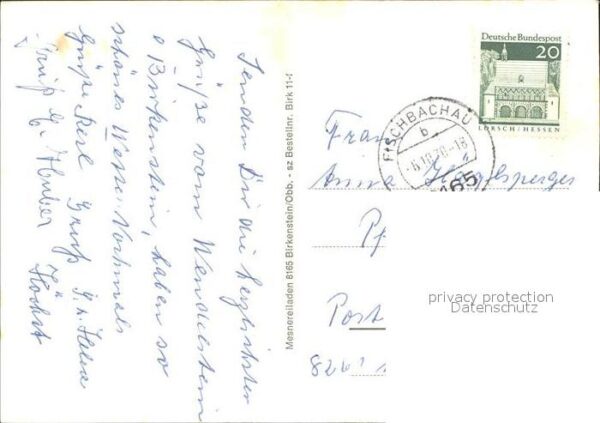 Senden Dir die herzlichsten
Grüße vom Wendelstein
o Birkenstein, haben so
schönes Wetter. Nochmals
Grüße Resl Gruß
Gruß Huber
Mesnereiladen 8165 Birkenstein/Obb. - sz Bestellnr. Birk 11-f
Deutsche Bundespost
20
LORSCH/HESSEN
FISCHBACHAU
b
-6.10.70-18
8165
Frau
Anna
Pf
Post
826
privacy protection
Datenschutz